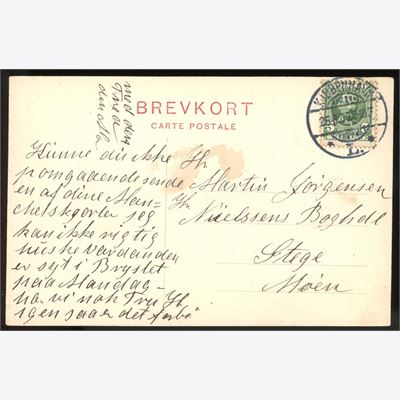 BREVKORT
CARTE POSTALE
KJØBENHAVN
L.
Kunne du ikke
pomgaaende sende
en af dine Man-
chetskjorter jeg
kan ikke rigtig
huske hvordan den
er syt i Brystet
paa Mandag
har vi nok Tryk
igen saa er det forbi
med den
din
Hr
Martin Jørgensen
Nielssens Boghdl
Stege
Møen